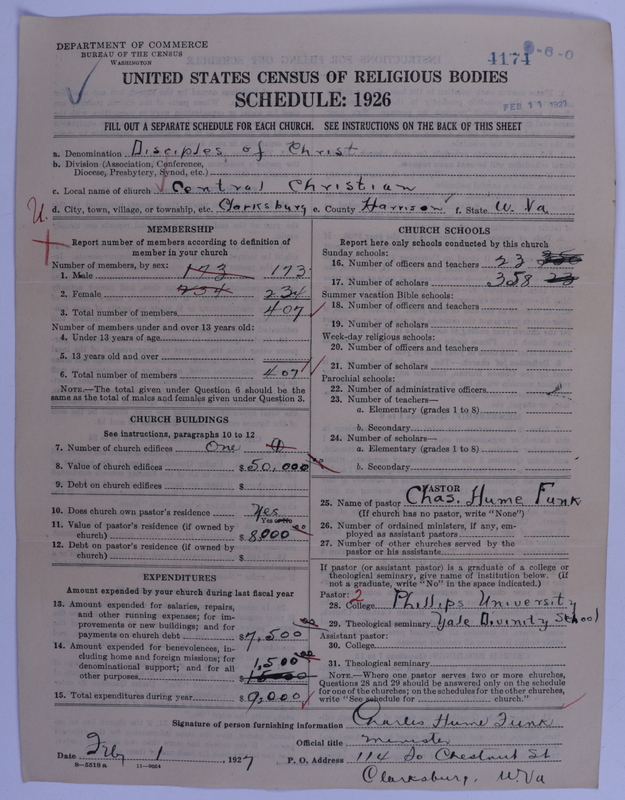 DEPARTMENT OF COMMERCE
BUREAU OF THE CENSUS
WASHINGTON
4174
FEB 11 1927
UNITED STATES CENSUS OF RELIGIOUS BODIES
SCHEDULE: 1926
FILL OUT A SEPARATE SCHEDULE FOR EACH CHURCH. SEE INSTRUCTIONS ON THE BACK OF THIS SHEET
a. Denomination Disciples of Christ
b. Division (Association, Conference, Diocese, Presbytery, Synod, etc.)
c. Local name of church Central Christian
d. City, town, village, or township, etc. Clarksburg e. County Harrison f. State W. Va
MEMBERSHIP
Report number of members according to definition of
member in your church
Number of members, by sex:
1. Male 173 173
2. Female 234 234
3. Total number of members 407
Number of members under and over 13 years old:
4. Under 13 years of age
5. 13 years old and over
6. Total number of members 407
NOTE.—The total given under Question 6 should be
same as the total of males and females given under Question 3.
CHURCH BUILDINGS
See instructions, paragraphs 10 to 12
7. Number of church edifices One
8. Value of church edifices $ 50,000
9. Debt on church edifices $
10. Does church own pastor's residence Yes
Yes or No
11. Value of pastor's residence (if owned by
church) $ 8,000
12. Debt on pastor's residence (if owned by
church) $
EXPENDITURES
Amount expended by your church during last fiscal year
13. Amount expended for salaries, repairs,
and other running expenses; for im-
provements or new buildings; and for
payments on church debt $ 7,500
14. Amount expended for benevolences, in-
cluding home and foreign missions; for
denominational support; and for all
other purposes $ 1,500
15. Total expenditures during year $ 9,000
CHURCH SCHOOLS
Report here only schools conducted by this church
Sunday schools:
16. Number of officers and teachers 23
17. Number of scholars 358
Summer vacation Bible schools:
18. Number of officers and teachers
19. Number of scholars
Week-day religious schools:
20. Number of officers and teachers
21. Number of scholars
Parochial schools:
22. Number of administrative officers
23. Number of teachers—
a. Elementary (grades 1 to 8)
b. Secondary
24. Number of scholars—
a. Elementary (grades 1 to 8)
b. Secondary
PASTOR
25. Name of pastor Chas. Hume Funk
(If church has no pastor, write "None")
26. Number of ordained ministers, if any, em-
ployed as assistant pastors
27. Number of other churches served by the
pastor or his assistants
If pastor (or assistant pastor) is a graduate of a college or
theological seminary, give name of institution below. (if
not a graduate, write "No" in the space indicated.)
Pastor: 2
28. College Phillips University
29. Theological seminary Yale Divinity School
Assistant pastor:
30. College
31. Theological seminary
NOTE.—Where one pastor serves two or more churches,
Questions 28 and 29 should be answered only on the schedule
for one of the churches; on the schedules for the other churches,
write "See schedule for church."
Signature of person furnishing information Charles Hume Funk
Official title Minister
Date Feb 1, 1927 P. O. Address 114 So Chestnut St
8-5518a 11-9054 Clarksburg, W Va